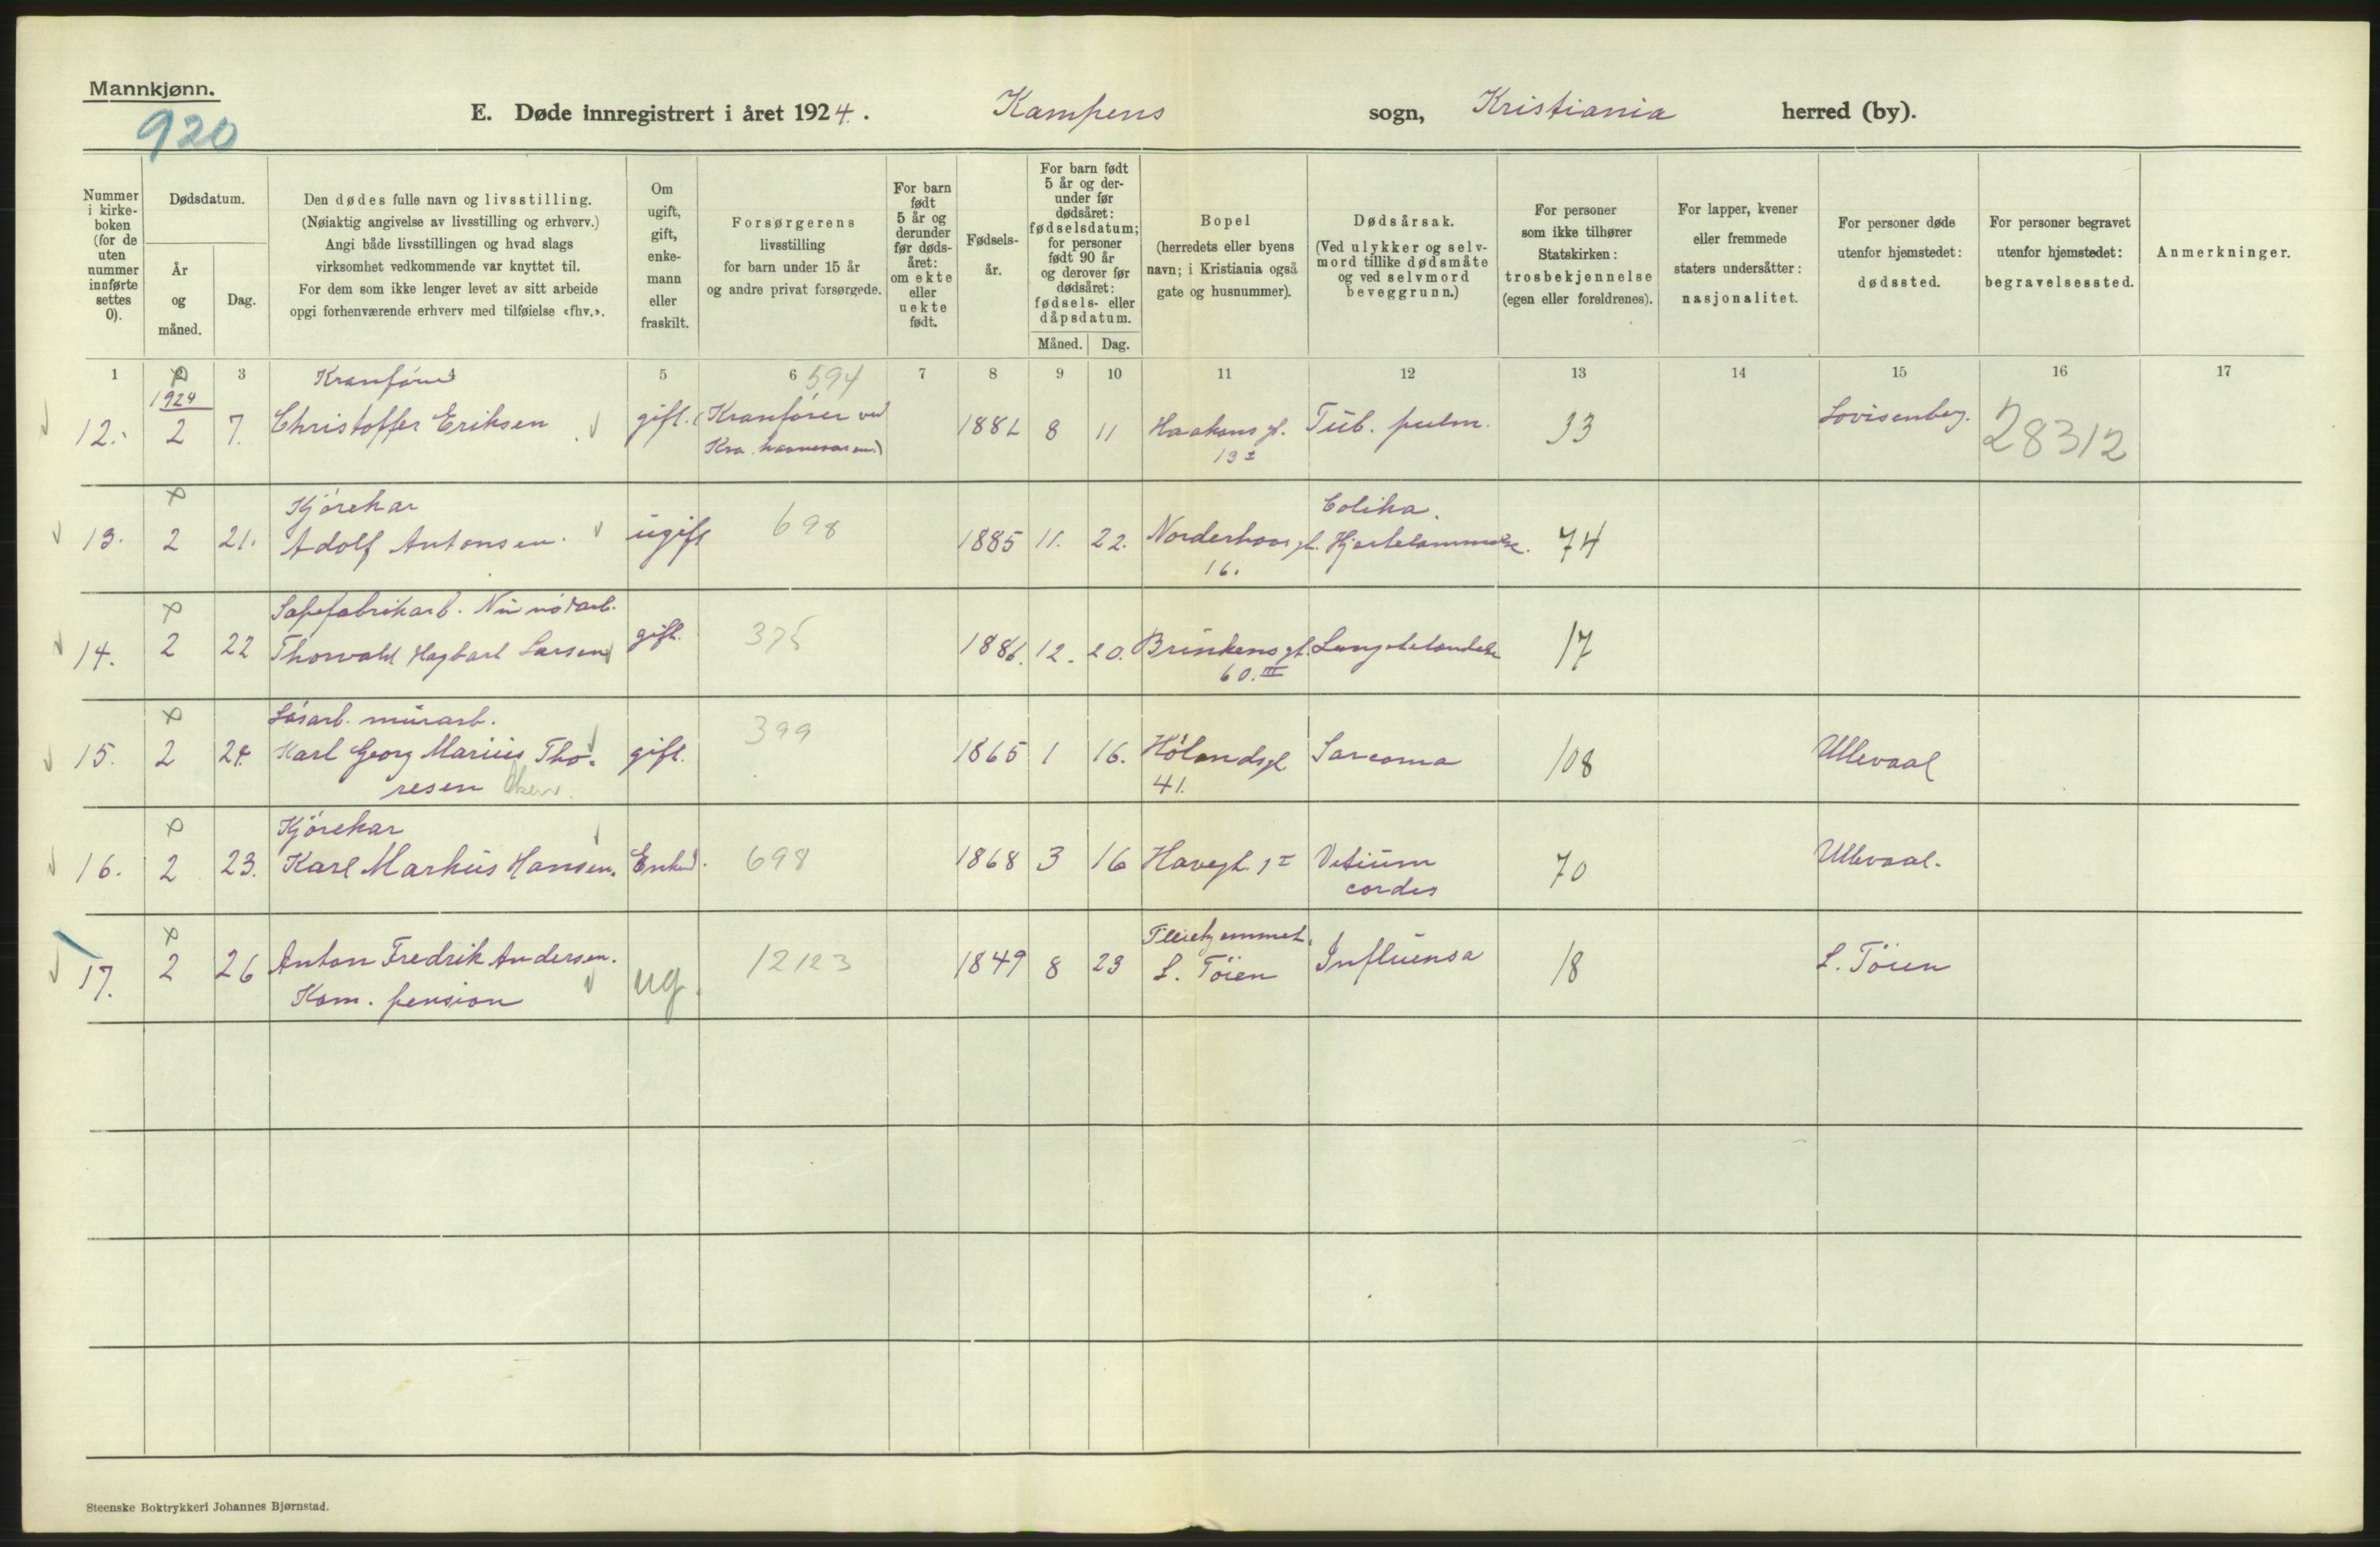 Mannkjønn.
920
E. Døde innregistrert i året 1924. Kampens sogn, Kristiania herred (by).
Nummer i kirke-boken (for de uten nummer innførte settes 0).
Dødsdatum.
År og måned.
Dag.
Den dødes fulle navn og livsstilling.
(Nøiaktig angivelse av livsstilling og erhverv.)
Angi både livsstillingen og hvad slags
virksomhet vedkommende var knyttet til.
For dem som ikke lenger levet av sitt arbeide
opgi forhenværende erhverv med tilføielse «fhv.».
Om ugift, gift, enke-mann eller fraskilt.
Forsørgerens
livsstilling
for barn under 15 år
og andre privat forsørgede.
For barn født 5 år og derunder før døds-året: om ekte eller uekte født.
Fødsels-år.
For barn født 5 år og der-under før dødsåret: fødselsdatum; for personer født 90 år og derover før dødsåret: fødsels- eller dåpsdatum.
Måned. Dag.
Bopel
(herredets eller byens
navn; i Kristiania også
gate og husnummer).
Dødsårsak.
(Ved ulykker og selv-
mord tillike dødsmåte
og ved selvmord
beveggrunn.)
For personer
som ikke tilhører
Statskirken:
trosbekjennelse
(egen eller foreldrenes).
For lapper, kvener
eller fremmede
staters undersåtter:
nasjonalitet.
For personer døde
utenfor hjemstedet:
dødssted.
For personer begravet
utenfor hjemstedet:
begravelsessted.
Anmerkninger.
1 2 3 4 5 6 7 8 9 10 11 12 13 14 15 16 17
Kranfører 594
1924
12. 2 7. Christoffer Eriksen gift. (Kranfører ved 1882 8 11 Haakons gt. Tub. pulm. 33 Lovisenberg. 28312
Kra. havnevæsen.) 13 I
Kjørekar Colika.
13. 2 21. Adolf Antonsen. ugift 698 1885 11. 22. Norderhovsgt. Hjertelammelse. 74
16.
Sæpefabrikarb. Nu nødarb.
14. 2 22 Thorvald Hagbart Larsen gift. 375 1886. 12. 20. Brinkens gt. Lungebetændelse 17
60. III
Løsarb. murarb. 399
15. 2 24. Karl Georg Marius Tho- gift. 1865 1 16. Hølandsgt. Sarcoma 108 Ullevaal
resen 41.
Kjørekar
16. 2 23. Karl Markus Hansen. Enkem. 698 1868 3 16 Havegt. 1 I Vitium 70 Ullevaal.
cordis
Pleiehjemmet.
17. 2 26 Anton Fredrik Andersen. ug. 12123 1849 8 23 L. Tøien Influensa 18 L. Tøien
Kom. pension
Steenske Boktrykkeri Johannes Bjørnstad.